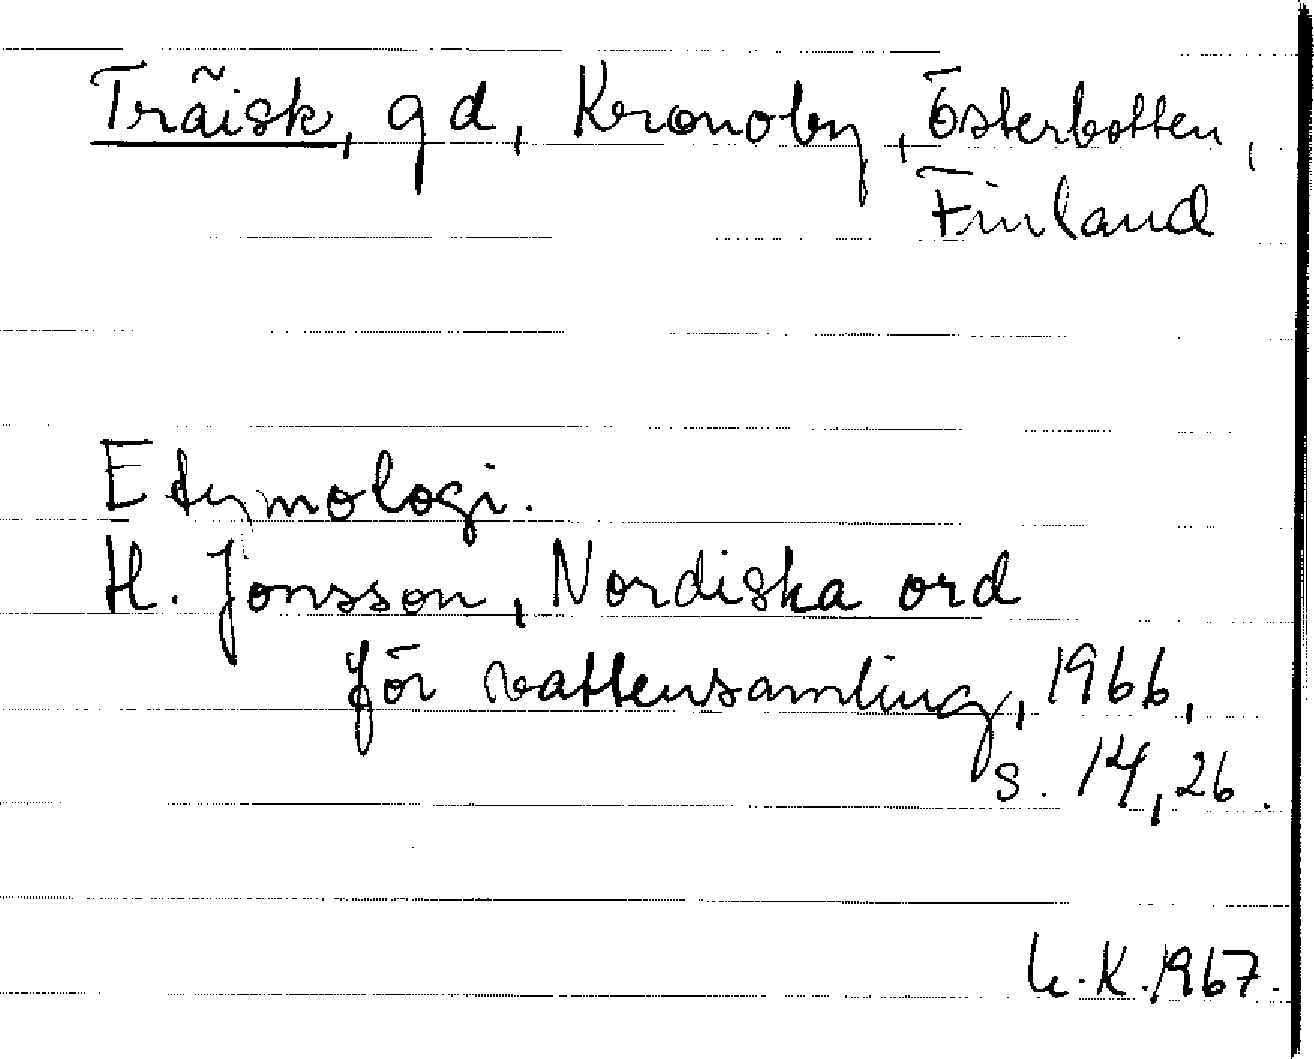 Träisk, gd, Kronoby, Österbotten,
Finland
Etymologi.
H. Jonsson, Nordiska ord
för vattensamling, 1966,
s. 14, 26.
L.K. 1967.